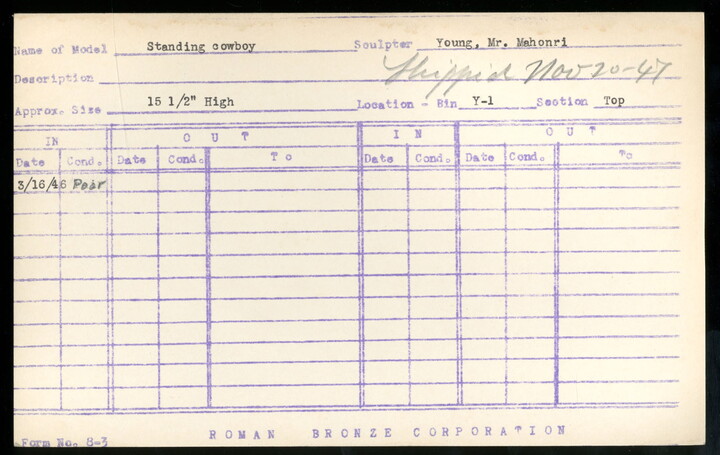 Name of Model Standing cowboy Sculpter Young, Mr. Mahonri
Description Shipped Nov 20-47
Approx. Size 15 1/2" High Location - Bin Y-1 Section Top
IN OUT IN OUT
Date Cond. Date Cond. To Date Cond. Date Cond. To
3/16/46 Poor
Form No. 8-3 ROMAN BRONZE CORPORATION